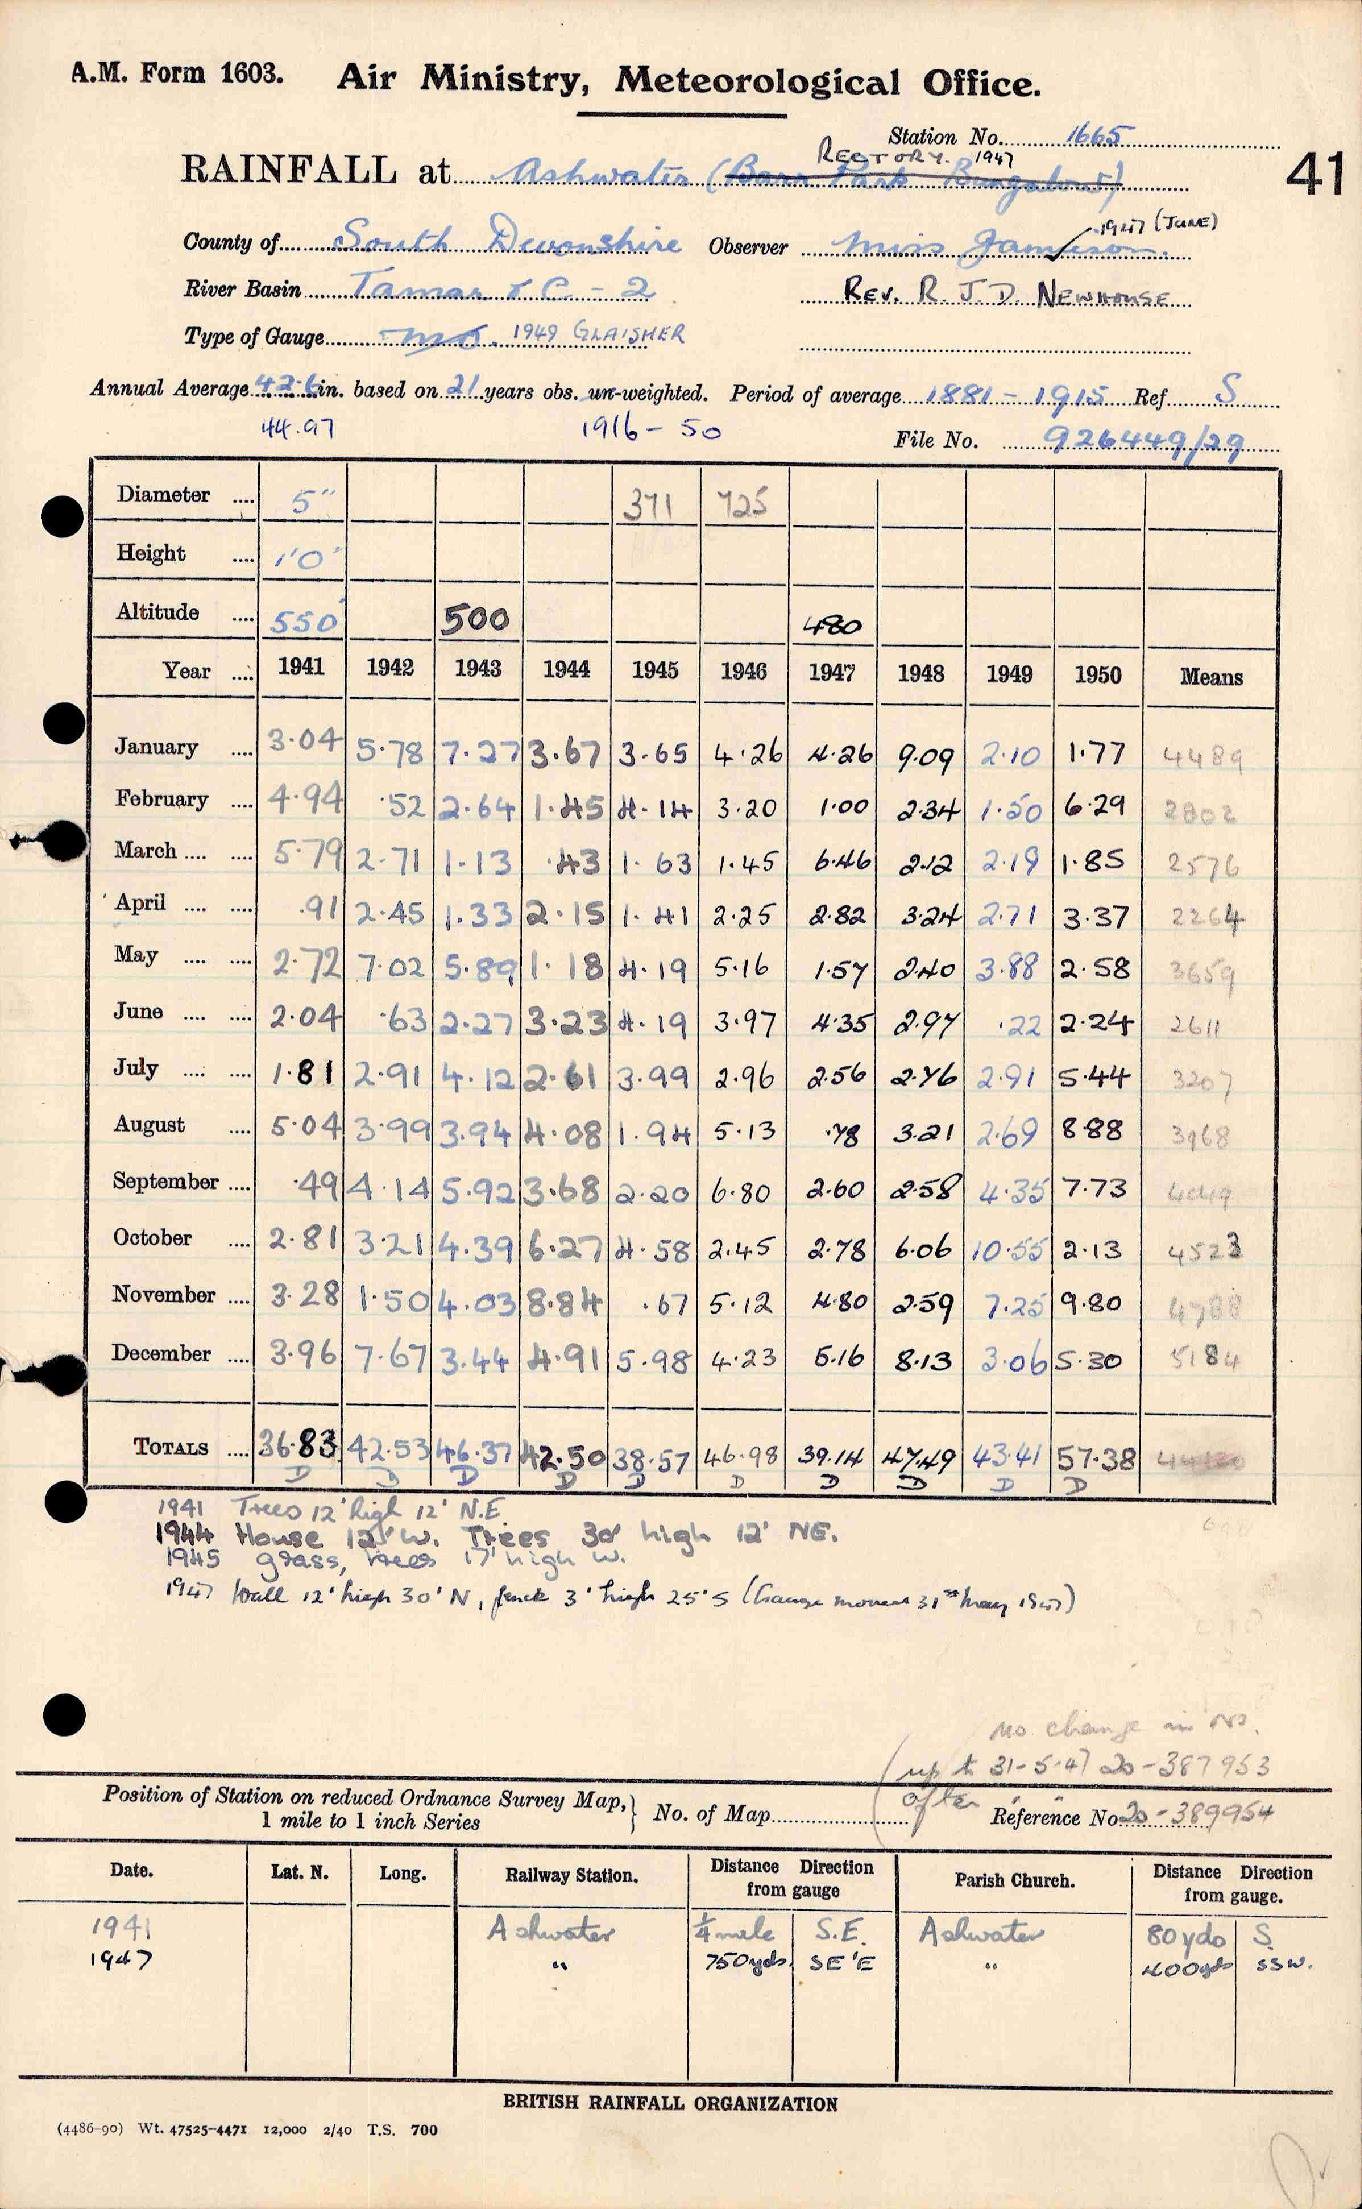 A.M. Form 1603. Air Ministry, Meteorological Office.
Station No. 1665
RECTORY. 1947
RAINFALL at Ashwater (Barr Park Bungalows)
41
1947 (JUNE)
County of South Devonshire Observer Miss Jamieson.
River Basin Tamar & C - 2 REV. R. J. D. NEWHOUSE
Type of Gauge MO. 1949 GLAISHER
Annual Average 42.6 in. based on 21 years obs. un-weighted. Period of average 1881 - 1915 Ref S
44.97 1916 - 50 File No. 926449/29
Diameter .... 5" 371 725
Height .... 1'0"
Altitude .... 550' 500 480
Year .... 1941 1942 1943 1944 1945 1946 1947 1948 1949 1950 Means
January .... 3.04 5.78 7.27 3.67 3.65 4.26 4.26 9.09 2.10 1.77 4489
February .... 4.94 .52 2.64 1.45 4.14 3.20 1.00 2.34 1.50 6.29 2802
March .... .... 5.79 2.71 1.13 .43 1.63 1.45 6.46 2.12 2.19 1.85 2576
April .... .... .91 2.45 1.33 2.15 1.41 2.25 2.82 3.24 2.71 3.37 2264
May .... .... 2.72 7.02 5.89 1.18 4.19 5.16 1.57 2.40 3.88 2.58 3659
June .... .... 2.04 .63 2.27 3.23 4.19 3.97 4.35 2.97 .22 2.24 2611
July .... .... 1.81 2.91 4.12 2.61 3.99 2.96 2.56 2.76 2.91 5.44 3207
August .... 5.04 3.99 3.94 4.08 1.94 5.13 .78 3.21 2.69 8.88 3968
September .... .49 4.14 5.92 3.68 2.20 6.80 2.60 2.58 4.35 7.73 4049
October .... 2.81 3.21 4.39 6.27 4.58 2.45 2.78 6.06 10.55 2.13 4523
November .... 3.28 1.50 4.03 8.84 .67 5.12 4.80 2.59 7.25 9.80 4788
December .... 3.96 7.67 3.44 4.91 5.98 4.23 5.16 8.13 3.06 5.30 5184
TOTALS .... 36.83 42.53 46.37 42.50 38.57 46.98 39.14 47.49 43.41 57.38
D D D D D D D D D D
1941 Trees 12' high 12' N.E
1944 House 12' W. Trees 30' high 12' NE.
1945 grass, trees 17' high W.
1947 Wall 12' high 30' N, fence 3' high 25' S (Gauge moved 31st May 1947)
no change in No.
(up to 31-5-47 20-387953
Position of Station on reduced Ordnance Survey Map,} 1 mile to 1 inch Series No. of Map (after " " Reference No. 20-389954
Date. Lat. N. Long. Railway Station. Distance from gauge Direction Parish Church. Distance from gauge. Direction
1941 Ashwater 1/4 mile S.E. Ashwater 80 yds S.
1947 " 750yds. SE'E " 400yds SSW.
BRITISH RAINFALL ORGANIZATION
(4486-90) Wt. 47525-4471 12,000 2/40 T.S. 700